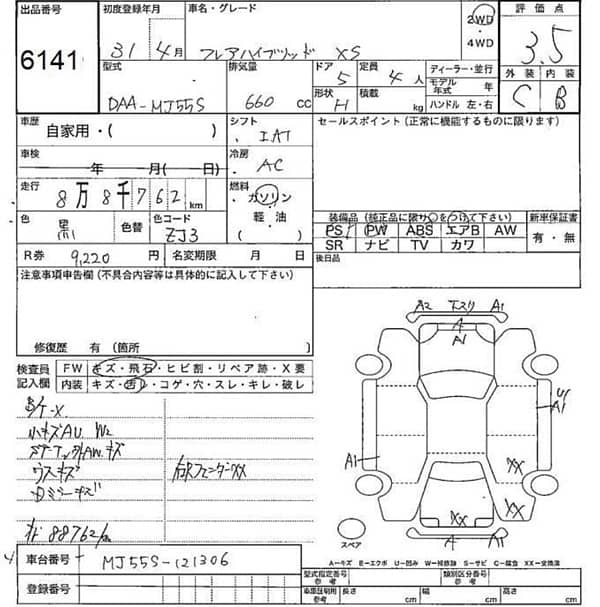 出品番号 初度登録年月 車名・グレード 評価点
6141 31年 4月 フレアハイブリッド XS 2WD・4WD 3.5
型式 排気量 ドア 定員 ディーラー・並行 外装 内装
DAA-MJ55S 660cc 5 4人 モデル年式 年 C B
形状 積載 ハンドル 左・右
H kg
車歴 シフト セールスポイント(正常に機能するものに限ります)
自家用・( ) ・IAT
車検 冷房
年 月( 日) ・AC
走行 燃料
8万8千762km ・ガソリン
色 色替 色コード ・軽油
黒 ZJ3 ( )
装備品(純正品に限り○をつけて下さい) 新車保証書
PS PW ABS エアB AW 有・無
SR ナビ TV カワ
R券 9,220円 名変期限 月 日 後日品
注意事項申告欄(不具合内容等は具体的に記入して下さい)
修復歴 有(箇所 )
検査員記入欄 FW キズ・飛石・ヒビ割・リペア跡・X要
内装 キズ・汚・コゲ・穴・スレ・キレ・破レ
小キズAU W2
ウスキズ
右RフェンダーXX
88762km
A2 エスリ A1
A
A1
U1
A1
A1
XX
XX XX
A A1
スペア
A-キズ E-エクボ U-凹み W-補修跡 S-サビ C-腐食 XX-交換済
車台番号 MJ55S-121306
登録番号
型式指定番号 参考 類別区分番号 参考
車庫証明用 参考 長さ cm 幅 cm 高さ cm